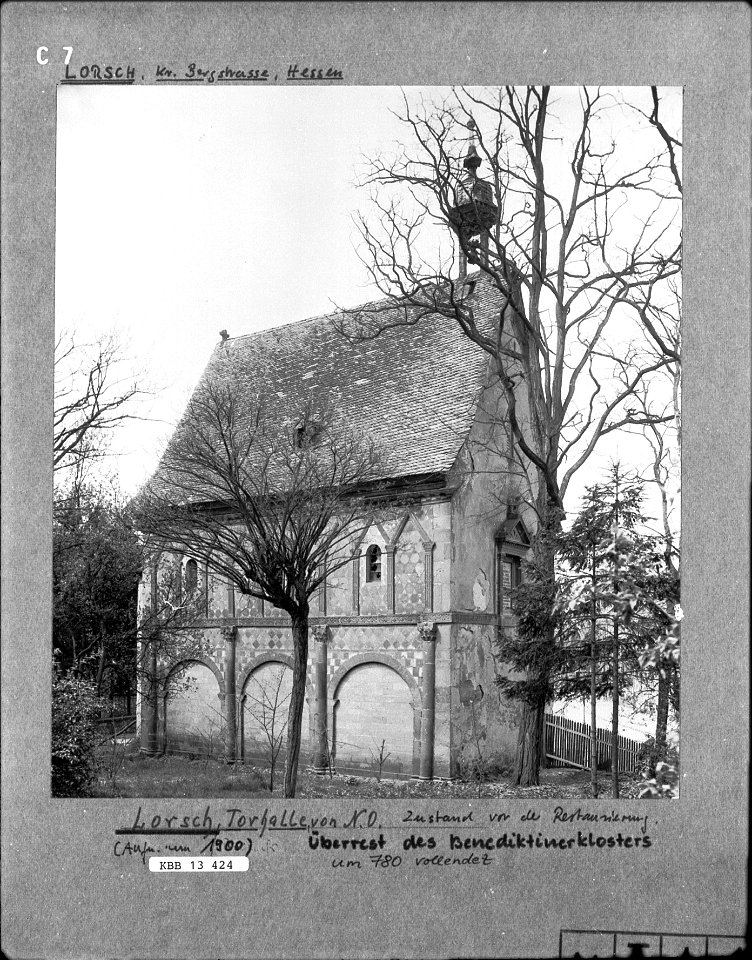 C 7
LORSCH, Kr. Bergstrasse, Hessen
Lorsch, Torhalle, von N.O. Zustand vor der Restaurierung.
(Aufn. um 1900) Überrest des Benediktinerklosters
KBB 13 424 um 780 vollendet